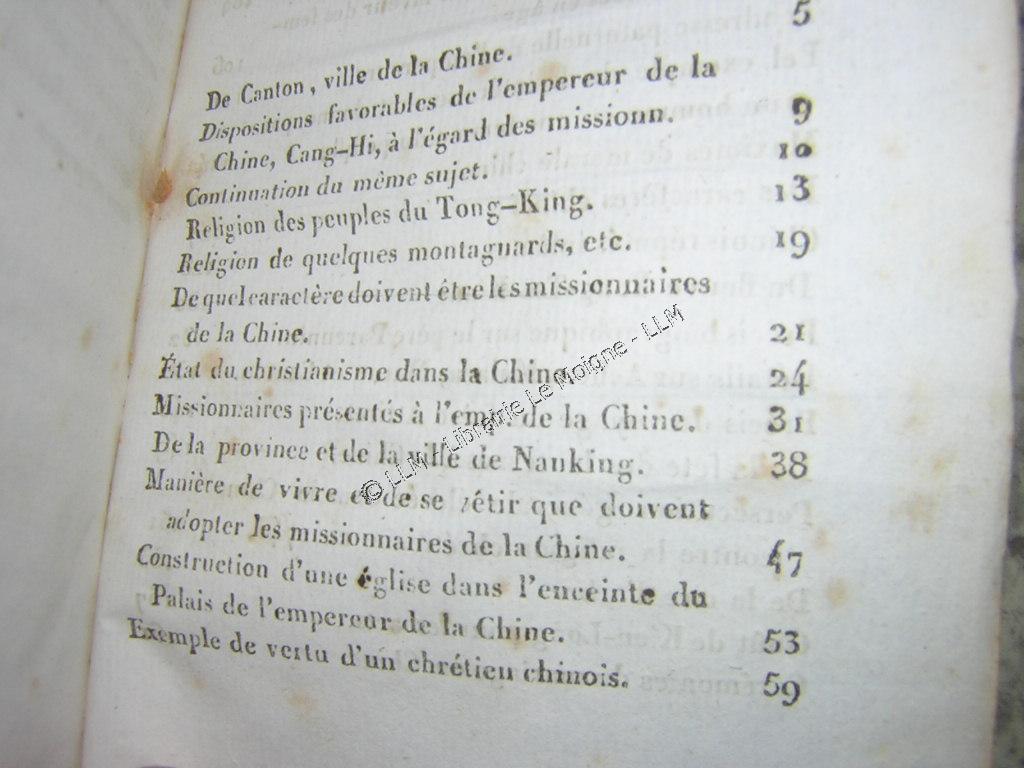 5
De Canton, ville de la Chine.
Dispositions favorables de l'empereur de la
Chine, Cang-Hi, à l'égard des missionn. 9
Continuation du même sujet. 10
Religion des peuples du Tong-King. 13
Religion de quelques montagnards, etc. 19
De quel caractère doivent être les missionnaires
de la Chine. 21
État du christianisme dans la Chine. 24
Missionnaires présentés à l'emp. de la Chine. 31
De la province et de la ville de Nanking. 38
Manière de vivre et de se vêtir que doivent
adopter les missionnaires de la Chine. 47
Construction d'une église dans l'enceinte du
Palais de l'empereur de la Chine. 53
Exemple de vertu d'un chrétien chinois. 59
© LLM - Librairie Le Moigne - LLM